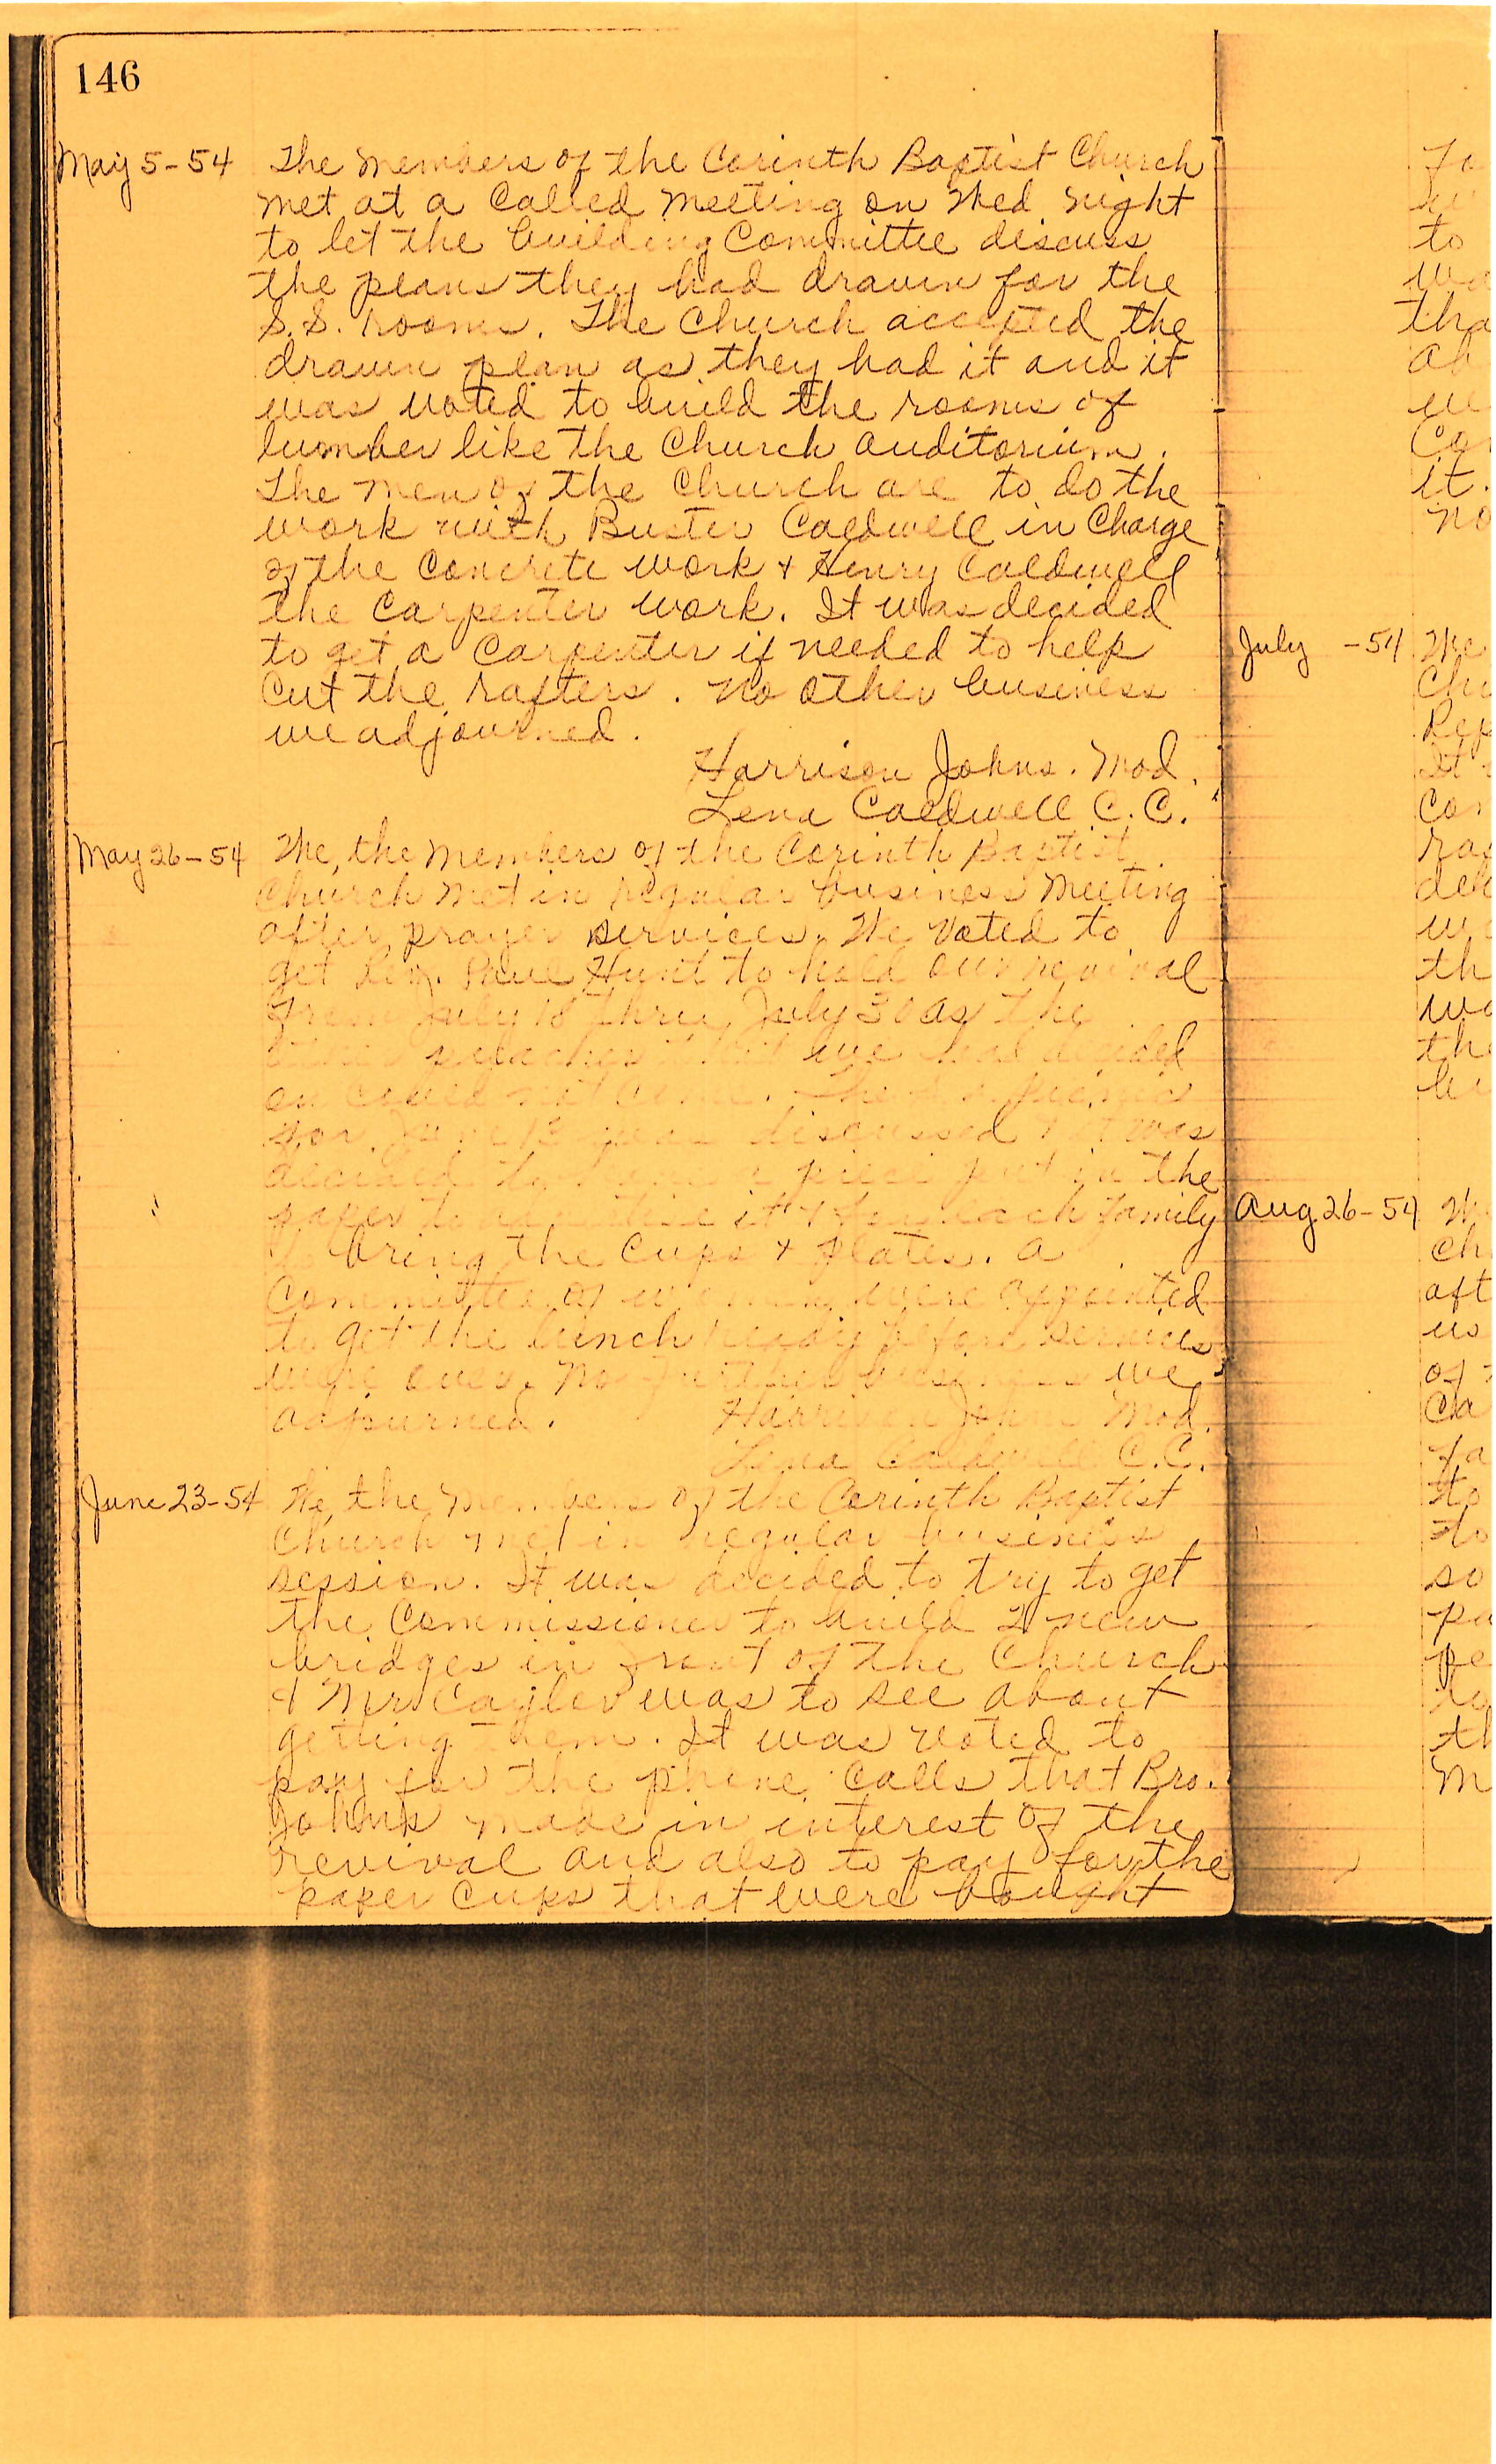 146
May 5-54 The members of the Corinth Baptist Church
met at a called meeting on Wed night
to let the building committee discuss
the plans they had drawn for the
S.S. rooms. The Church accepted the
drawn plan as they had it and it
was voted to build the rooms of
lumber like the Church auditorium.
The men of the Church are to do the
work with Buster Caldwell in charge
of the concrete work & Henry Caldwell
the carpenter work. It was decided
to get a carpenter if needed to help
cut the rafters. No other business
we adjourned.
Harrison Johns. Mod.
Lena Caldwell C.C.
May 26-54 We, the members of the Corinth Baptist
Church met in regular business meeting
after prayer services. We voted to
get Hunt to hold our revival
from July 18 thru July 30 as the
that we had decided
on could not
for June 13 was discussed & it was
decided to have a piece put in the
paper to it & for each family
to bring the cups & plates. A
committee of were appointed
to get the lunch ready before services
were over. No further business we
adjourned. Harrison Johns Mod.
Lena Caldwell C.C.
June 23-54 We, the members of the Corinth Baptist
Church met in regular business
session. It was decided to try to get
the Commissioner to build 2 new
bridges in front of the Church
& Mr. Caylor was to see about
getting them. It was voted to
pay for the phone calls that Bro.
Johns made in interest of the
revival and also to pay for the
paper cups that were bought
to
it.
July -54 We
Aug 26-54
us
of
to
to
so